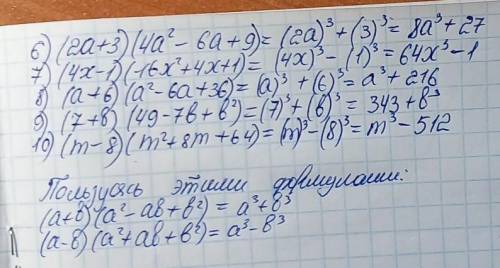 6) (2a+3)(4a²-6a+9)=(2a)³+(3)³=8a³+27
7) (4x-1)(16x²+4x+1)=(4x)³-(1)³=64x³-1
8) (a+6)(a²-6a+36)=(a)³+(6)³=a³+216
9) (7+в)(49-7в+в²)=(7)³+(в)³=343+в³
10) (m-8)(m²+8m+64)=(m)³-(8)³=m³-512
Пользуясь этими формулами:
(a+в)(a²-aв+в²)=a³+в³
(a-в)(a²+aв+в²)=a³-в³